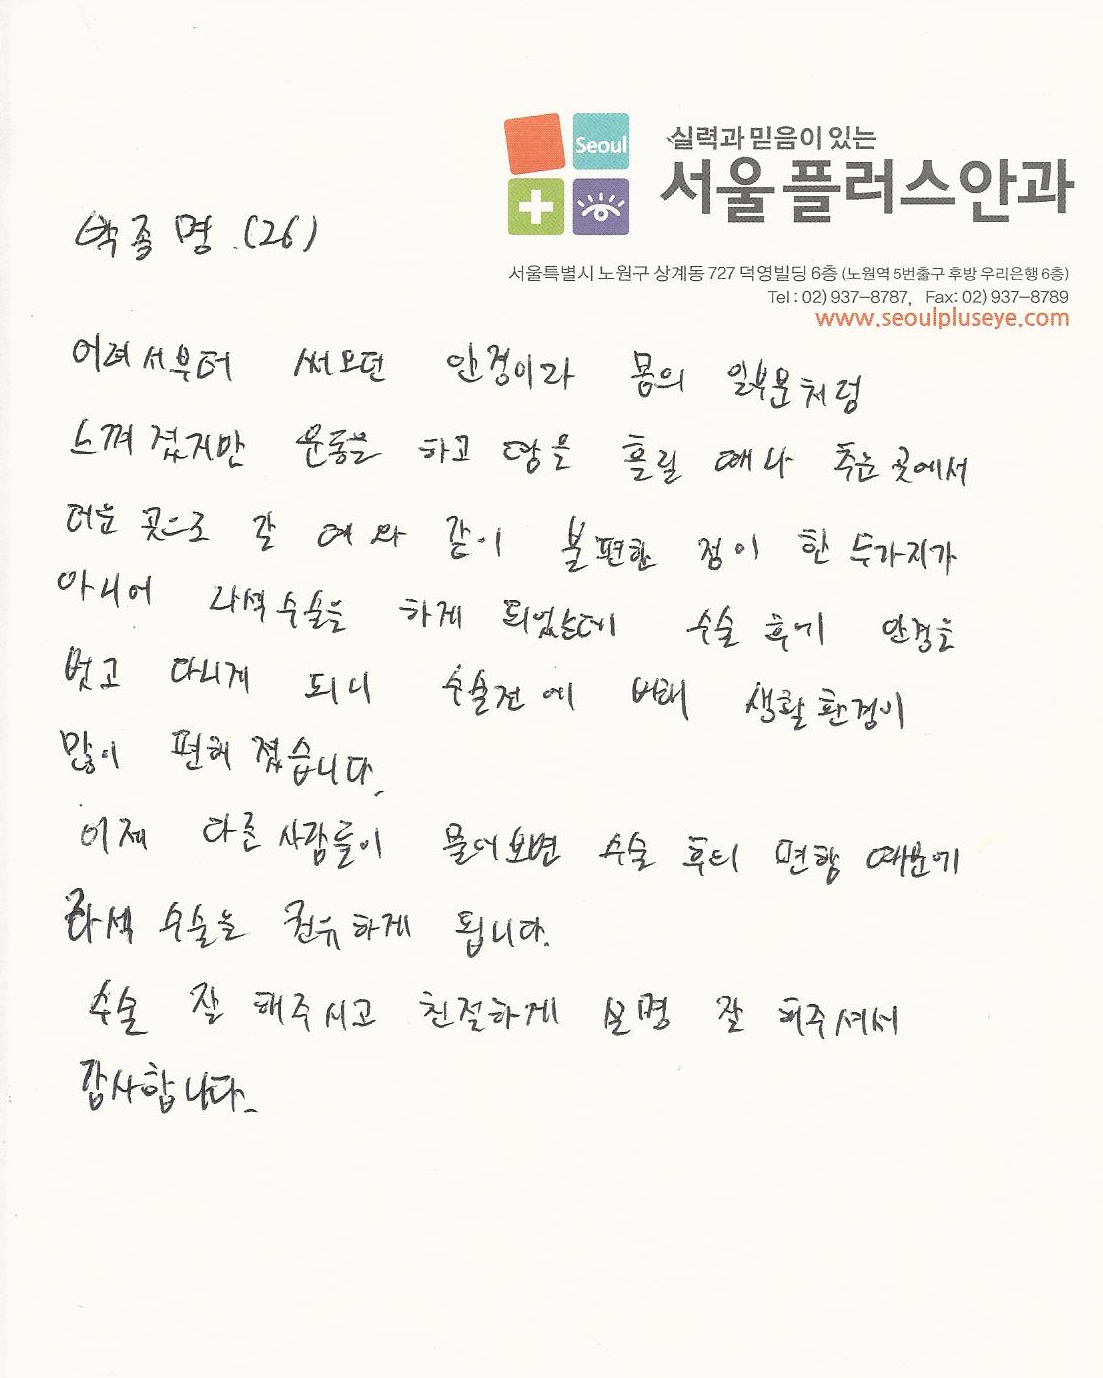 Seoul
실력과 믿음이 있는
서울플러스안과
서울특별시 노원구 상계동 727 덕영빌딩 6층 (노원역 5번출구 후방 우리은행 6층)
Tel : 02) 937-8787, Fax : 02) 937-8789
www.seoulpluseye.com
박종명.(26)
어려서부터 써오던 안경이라 몸의 일부분처럼
느껴졌지만 운동을 하고 땀을 흘릴 때나 추운곳에서
더운 곳으로 갈 때와 같이 불편한 점이 한 두가지가
아니어 라섹수술을 하게 되었는데 수술 후에 안경을
벗고 다니게 되니 수술전에 비해 생활환경이
많이 편해졌습니다.
이제 다른 사람들이 물어보면 수술 후의 편함 때문에
라섹 수술을 권유하게 됩니다.
수술 잘 해주시고 친절하게 설명 잘 해주셔서
감사합니다.